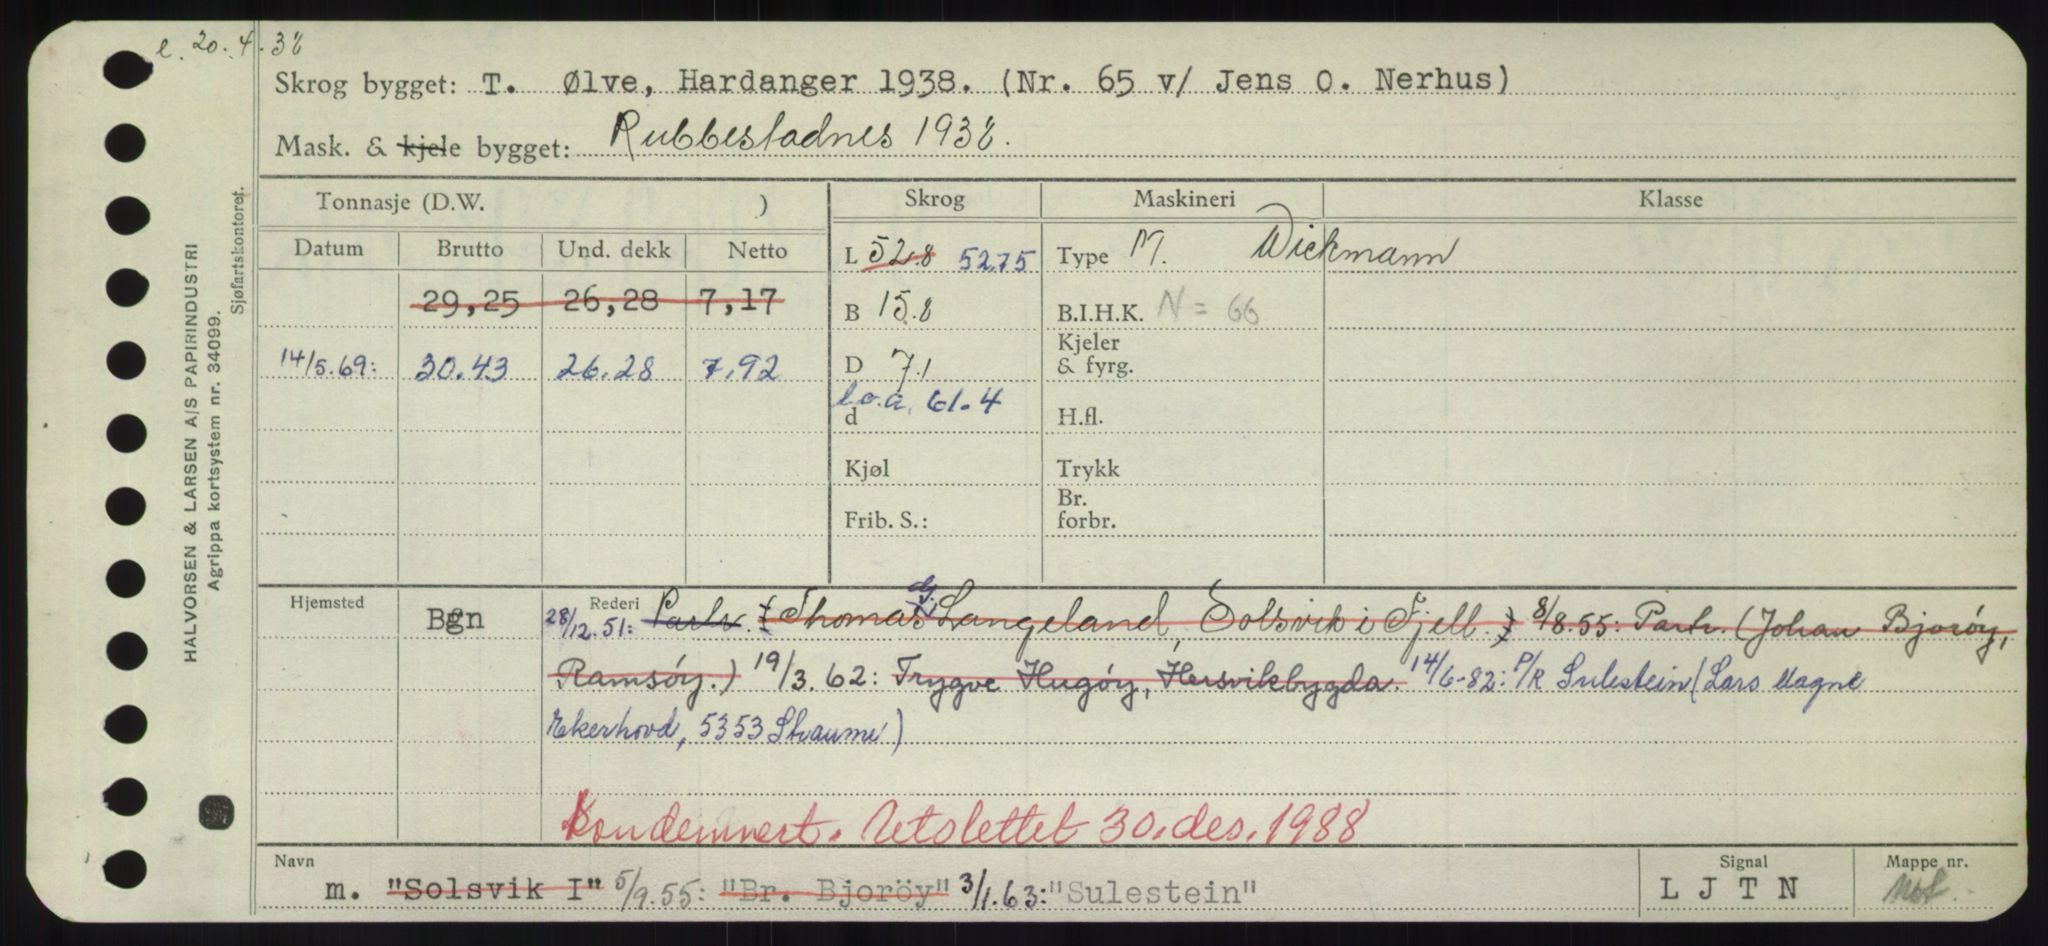 e. 20.4.38
Skrog bygget: T. Ølve, Hardanger 1938. (Nr. 65 v/ Jens O. Nerhus)
Mask. & kjele bygget: Rubbestadnes 1938.
HALVORSEN & LARSEN A/S PAPIRINDUSTRI
Agrippa kortsystem nr. 34099.
Sjøfartskontoret.
Tonnasje (D.W. ) Skrog Maskineri Klasse
Datum Brutto Und. dekk Netto L 52.8 52.75 Type M. Wichmann
29,25 26,28 7,17 B 15.8 B.I.H.K. N = 66
14/5.69: 30.43 26.28 7.92 D 7.1 Kjeler & fyrg.
l.o.a. 61.4
d H.fl.
Kjøl Trykk
Frib. S.: Br. forbr.
Hjemsted Bgn Rederi 28/12.51: Partr. (Thomas Langeland, Solsvik i Fjell.) 8/8.55: Partr. (Johan Bjoröy,
Ramsöy.) 19/3.62: Trygve Hugöy, Hersvikbygda. 14/6-82: P/R Sulestein (Lars Magne
Ekerhovd, 5353 Straume)
Kondemnert. Utslettet 30.des.1988
Navn Signal Mappe nr.
m. "Solsvik I" 5/9.55: "Br. Bjoröy" 3/1.63: "Sulestein" L J T N